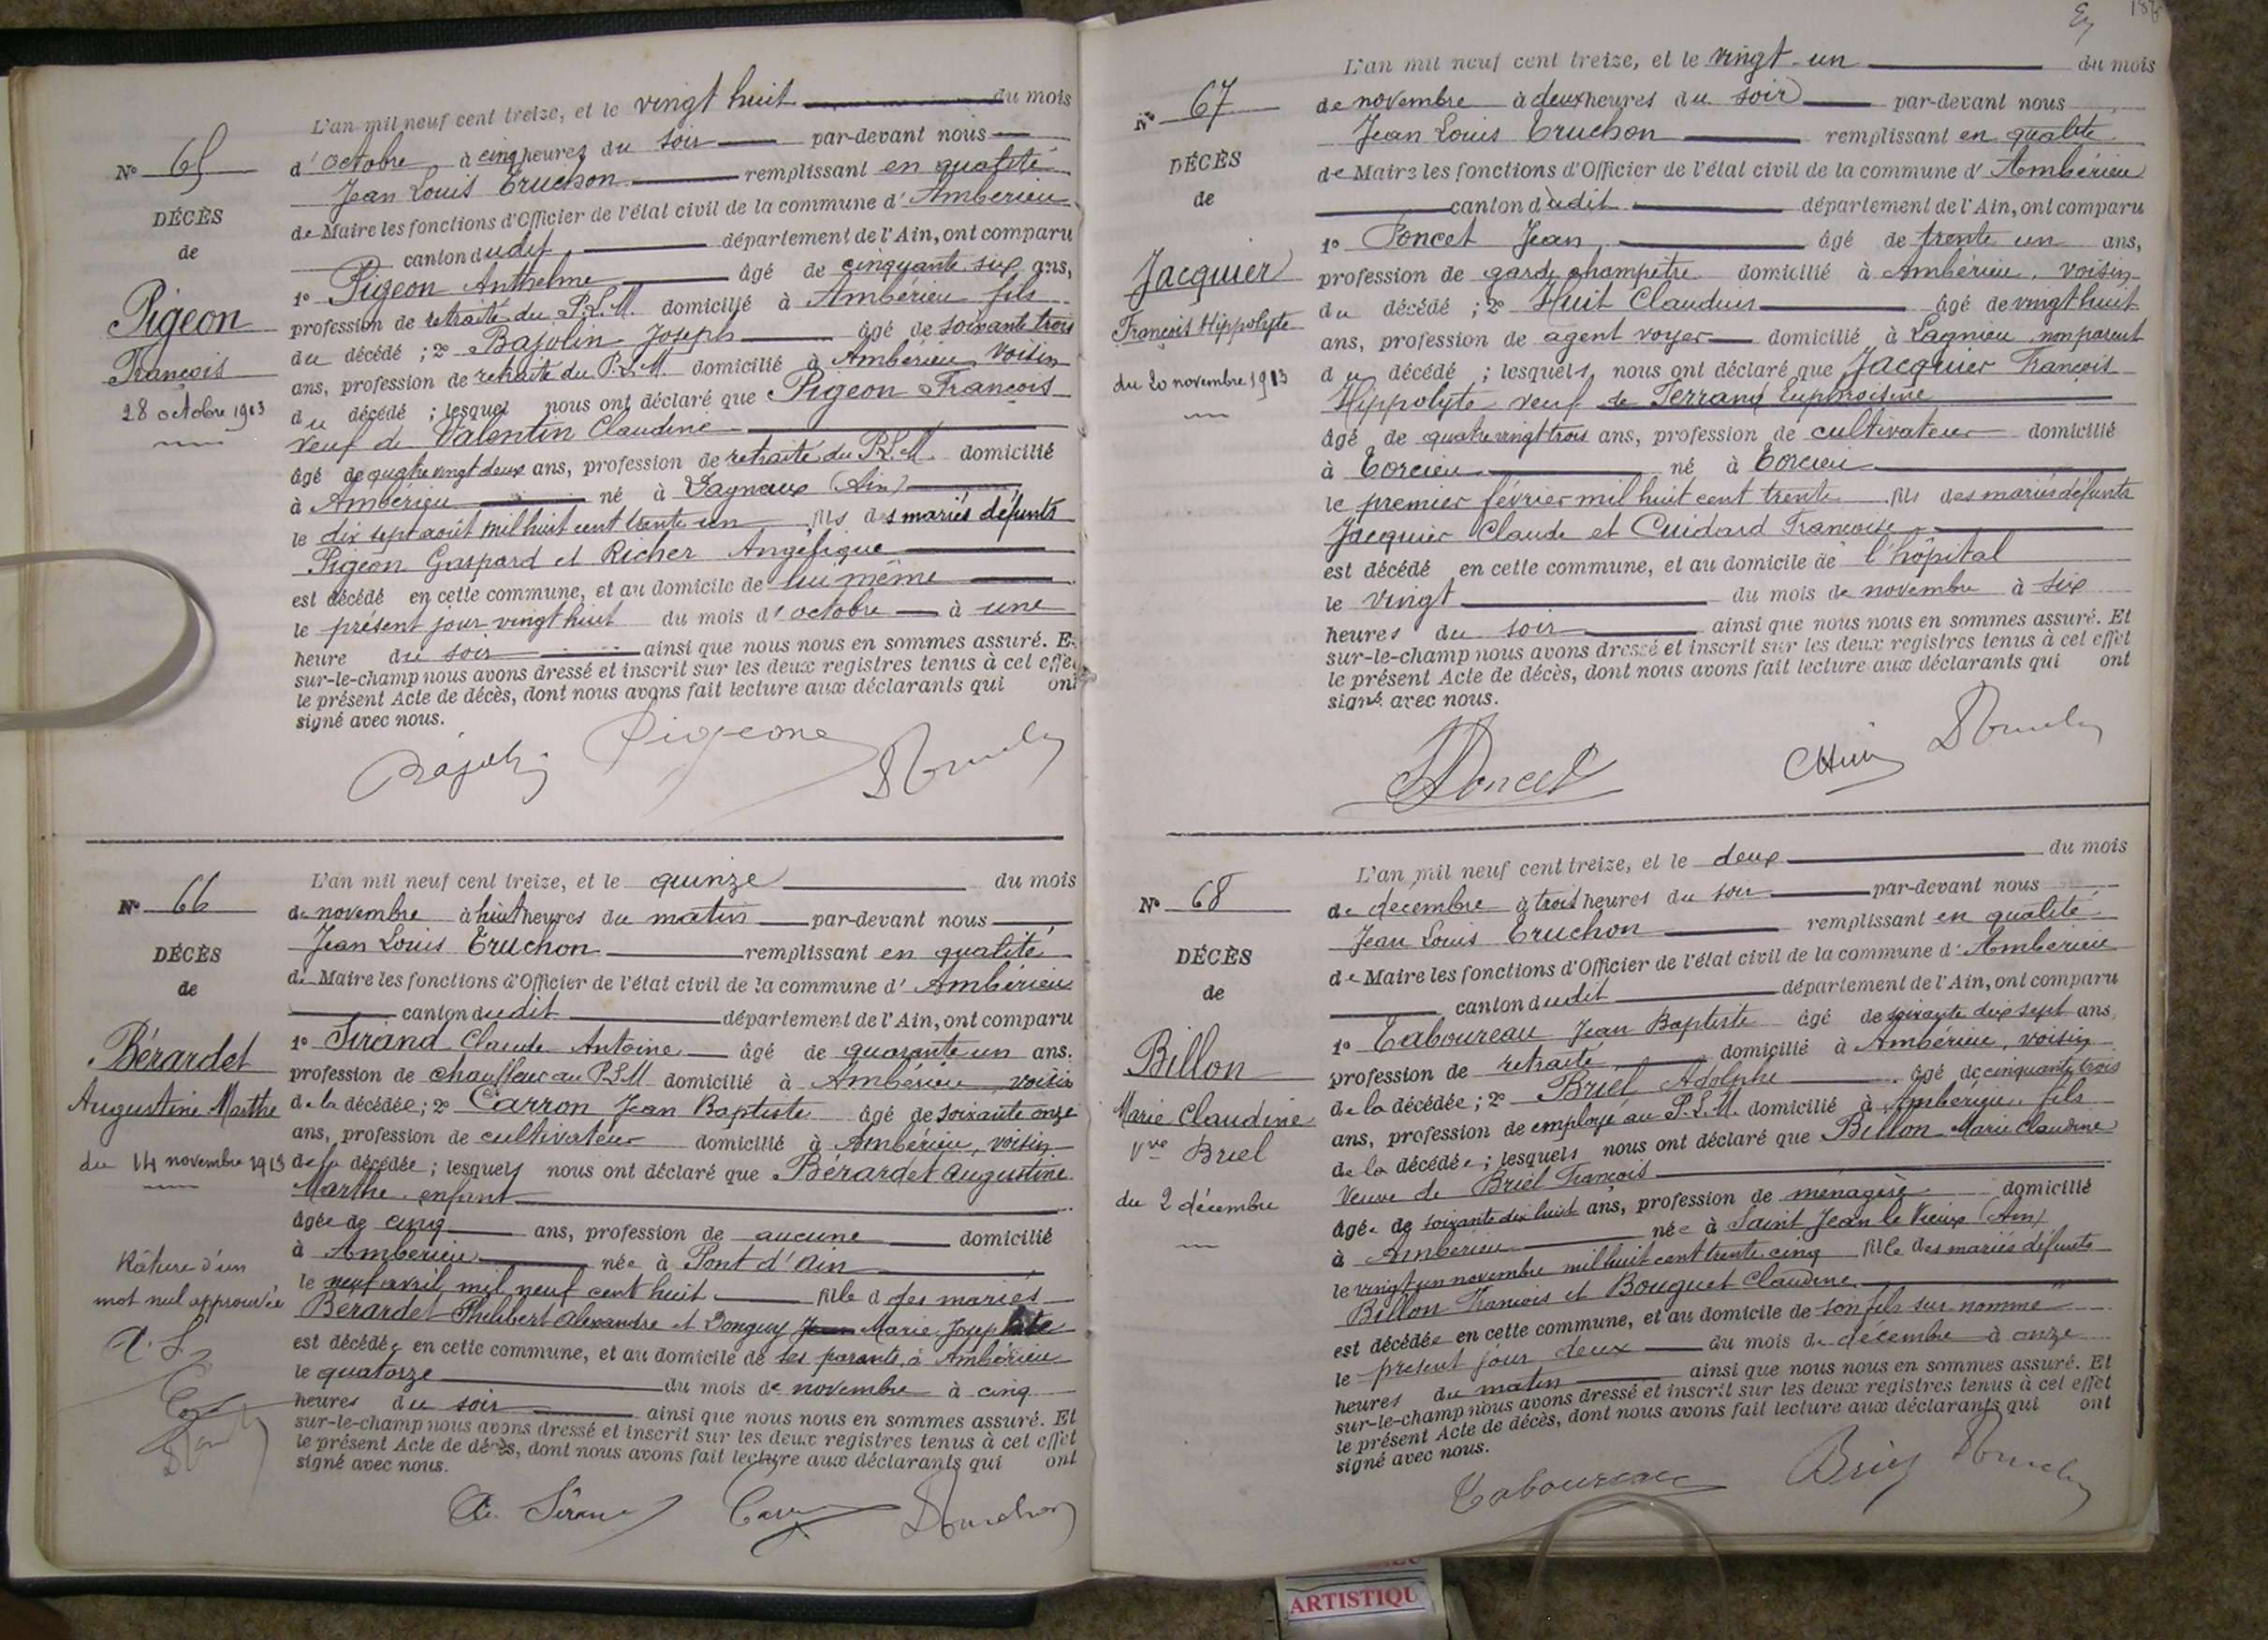 L'an mil neuf cent treize, et le vingt huit du mois
d'octobre à cinq heures du soir par-devant nous
Jean Louis Truchon remplissant en qualité
de Maire les fonctions d'Officier de l'état civil de la commune d'Ambérieu
canton dudit département de l'Ain, ont comparu
1o Pigeon Anthelme âgé de cinquante six ans,
profession de retraité du P.L.M. domicilié à Ambérieu fils
du décédé ; 2o Bajolin Joseph âgé de soixante trois
ans, profession de retraité du P.L.M. domicilié à Ambérieu voisin
du décédé ; lesquel nous ont déclaré que Pigeon François
veuf de Valentin Claudine
âgé de quatre vingt deux ans, profession de retraité du P.L.M. domicilié
à Ambérieu né à Dagneux (Ain)
le dix sept août mil huit cent trente un fils des mariés défunts
Pigeon Gaspard et Richer Angélique
est décédé en cette commune, et au domicile de lui même
le présent jour vingt huit du mois d'octobre à une
heure du soir ainsi que nous nous en sommes assuré. E
sur-le-champ nous avons dressé et inscrit sur les deux registres tenus à cel effe
le présent Acte de décès, dont nous avons fait lecture aux déclarants qui ont
signé avec nous.
No 65
DÉCÈS
de
Pigeon
François
28 octobre 1913
Bajolin Pigeon Truchon
No 66
DÉCÈS
de
Bérardet
Augustine Marthe
du 14 novembre 1913
Râture d'un
mot nul approuvée
L'an mil neuf cent treize, et le quinze du mois
de novembre à huit heures du matin par-devant nous
Jean Louis Truchon remplissant en qualité
de Maire les fonctions d'Officier de l'état civil de la commune d'Ambérieu
canton dudit département de l'Ain, ont comparu
1o Sirand Claude Antoine âgé de quarante un ans.
profession de chauffeur au P.L.M. domicilié à Ambérieu voisin
de la décédée ; 2o Carron Jean Baptiste âgé de soixante onze
ans, profession de cultivateur domicilié à Ambérieu, voisin
de la décédée ; lesquels nous ont déclaré que Bérardet Augustine
Marthe enfant
âgée de cinq ans, profession de aucune domicilié
à Ambérieu née à Pont d'Ain
le neuf avril mil neuf cent huit fille d des mariés
Bérardet Philibert Alexandre et Donguy Marie Josephte
est décédée en cette commune, et au domicile de ses parents à Ambérieu
le quatorze du mois de novembre à cinq
heures du soir ainsi que nous nous en sommes assuré. Et
sur-le-champ nous avons dressé et inscrit sur les deux registres tenus à cel effet
le présent Acte de décès, dont nous avons fait lecture aux déclarants qui ont
signé avec nous.
Truchon
No 67
DÉCÈS
de
Jacquier
François Hippolyte
du 20 novembre 1913
L'an mil neuf cent treize, et le vingt-un du mois
de novembre à deux heures du soir par-devant nous
Jean Louis Truchon remplissant en qualité
de Maire les fonctions d'Officier de l'état civil de la commune d'Ambérieu
canton dudit département de l'Ain, ont comparu
1o Poncet Jean âgé de trente un ans,
profession de garde champêtre domicilié à Ambérieu, voisin
du décédé ; 2o Huit Claudius âgé de vingt huit
ans, profession de agent voyer domicilié à Lagnieu non parent
du décédé ; lesquels nous ont déclaré que Jacquier François
Hippolyte veuf de Ferrand Euphroisine
âgé de quatre vingt trois ans, profession de cultivateur domicilié
à Torcieu né à Torcieu
le premier février mil huit cent trente fils des mariés défunts
Jacquier Claude et Cuidard Françoise
est décédé en cette commune, et au domicile de l'hôpital
le vingt du mois de novembre à six
heures du soir ainsi que nous nous en sommes assuré. Et
sur-le-champ nous avons dressé et inscrit sur les deux registres tenus à cel effet
le présent Acte de décès, dont nous avons fait lecture aux déclarants qui ont
signé avec nous.
Poncet
No 68
DÉCÈS
de
Billon
Marie Claudine
Vve Briel
du 2 décembre
L'an mil neuf cent treize, et le deux du mois
de décembre à trois heures du soir par-devant nous
Jean Louis Truchon remplissant en qualité
de Maire les fonctions d'Officier de l'état civil de la commune d'Ambérieu
canton dudit département de l'Ain, ont comparu
1o Taboureau Jean Baptiste âgé de soixante dix sept ans,
profession de retraité domicilié à Ambérieu, voisin
de la décédée ; 2o Briel Adolphe âgé de cinquante trois
ans, profession de employé au P.L.M. domicilié à Ambérieu fils
de la décédée ; lesquels nous ont déclaré que Billon Marie Claudine
Veuve de Briel François
âgée de soixante dix huit ans, profession de ménagère domicilié
à Ambérieu née à Saint Jean le Vieux (Ain)
le vingt un novembre mil huit cent trente cinq fille des mariés défunts
Billon François et Bouquet Claudine
est décédée en cette commune, et au domicile de son fils sus nommé
le présent jour deux du mois de décembre à onze
heures du matin ainsi que nous nous en sommes assuré. Et
sur-le-champ nous avons dressé et inscrit sur les deux registres tenus à cel effet
le présent Acte de décès, dont nous avons fait lecture aux déclarants qui ont
signé avec nous.
Taboureau Briel Truchon
ARTISTIQU